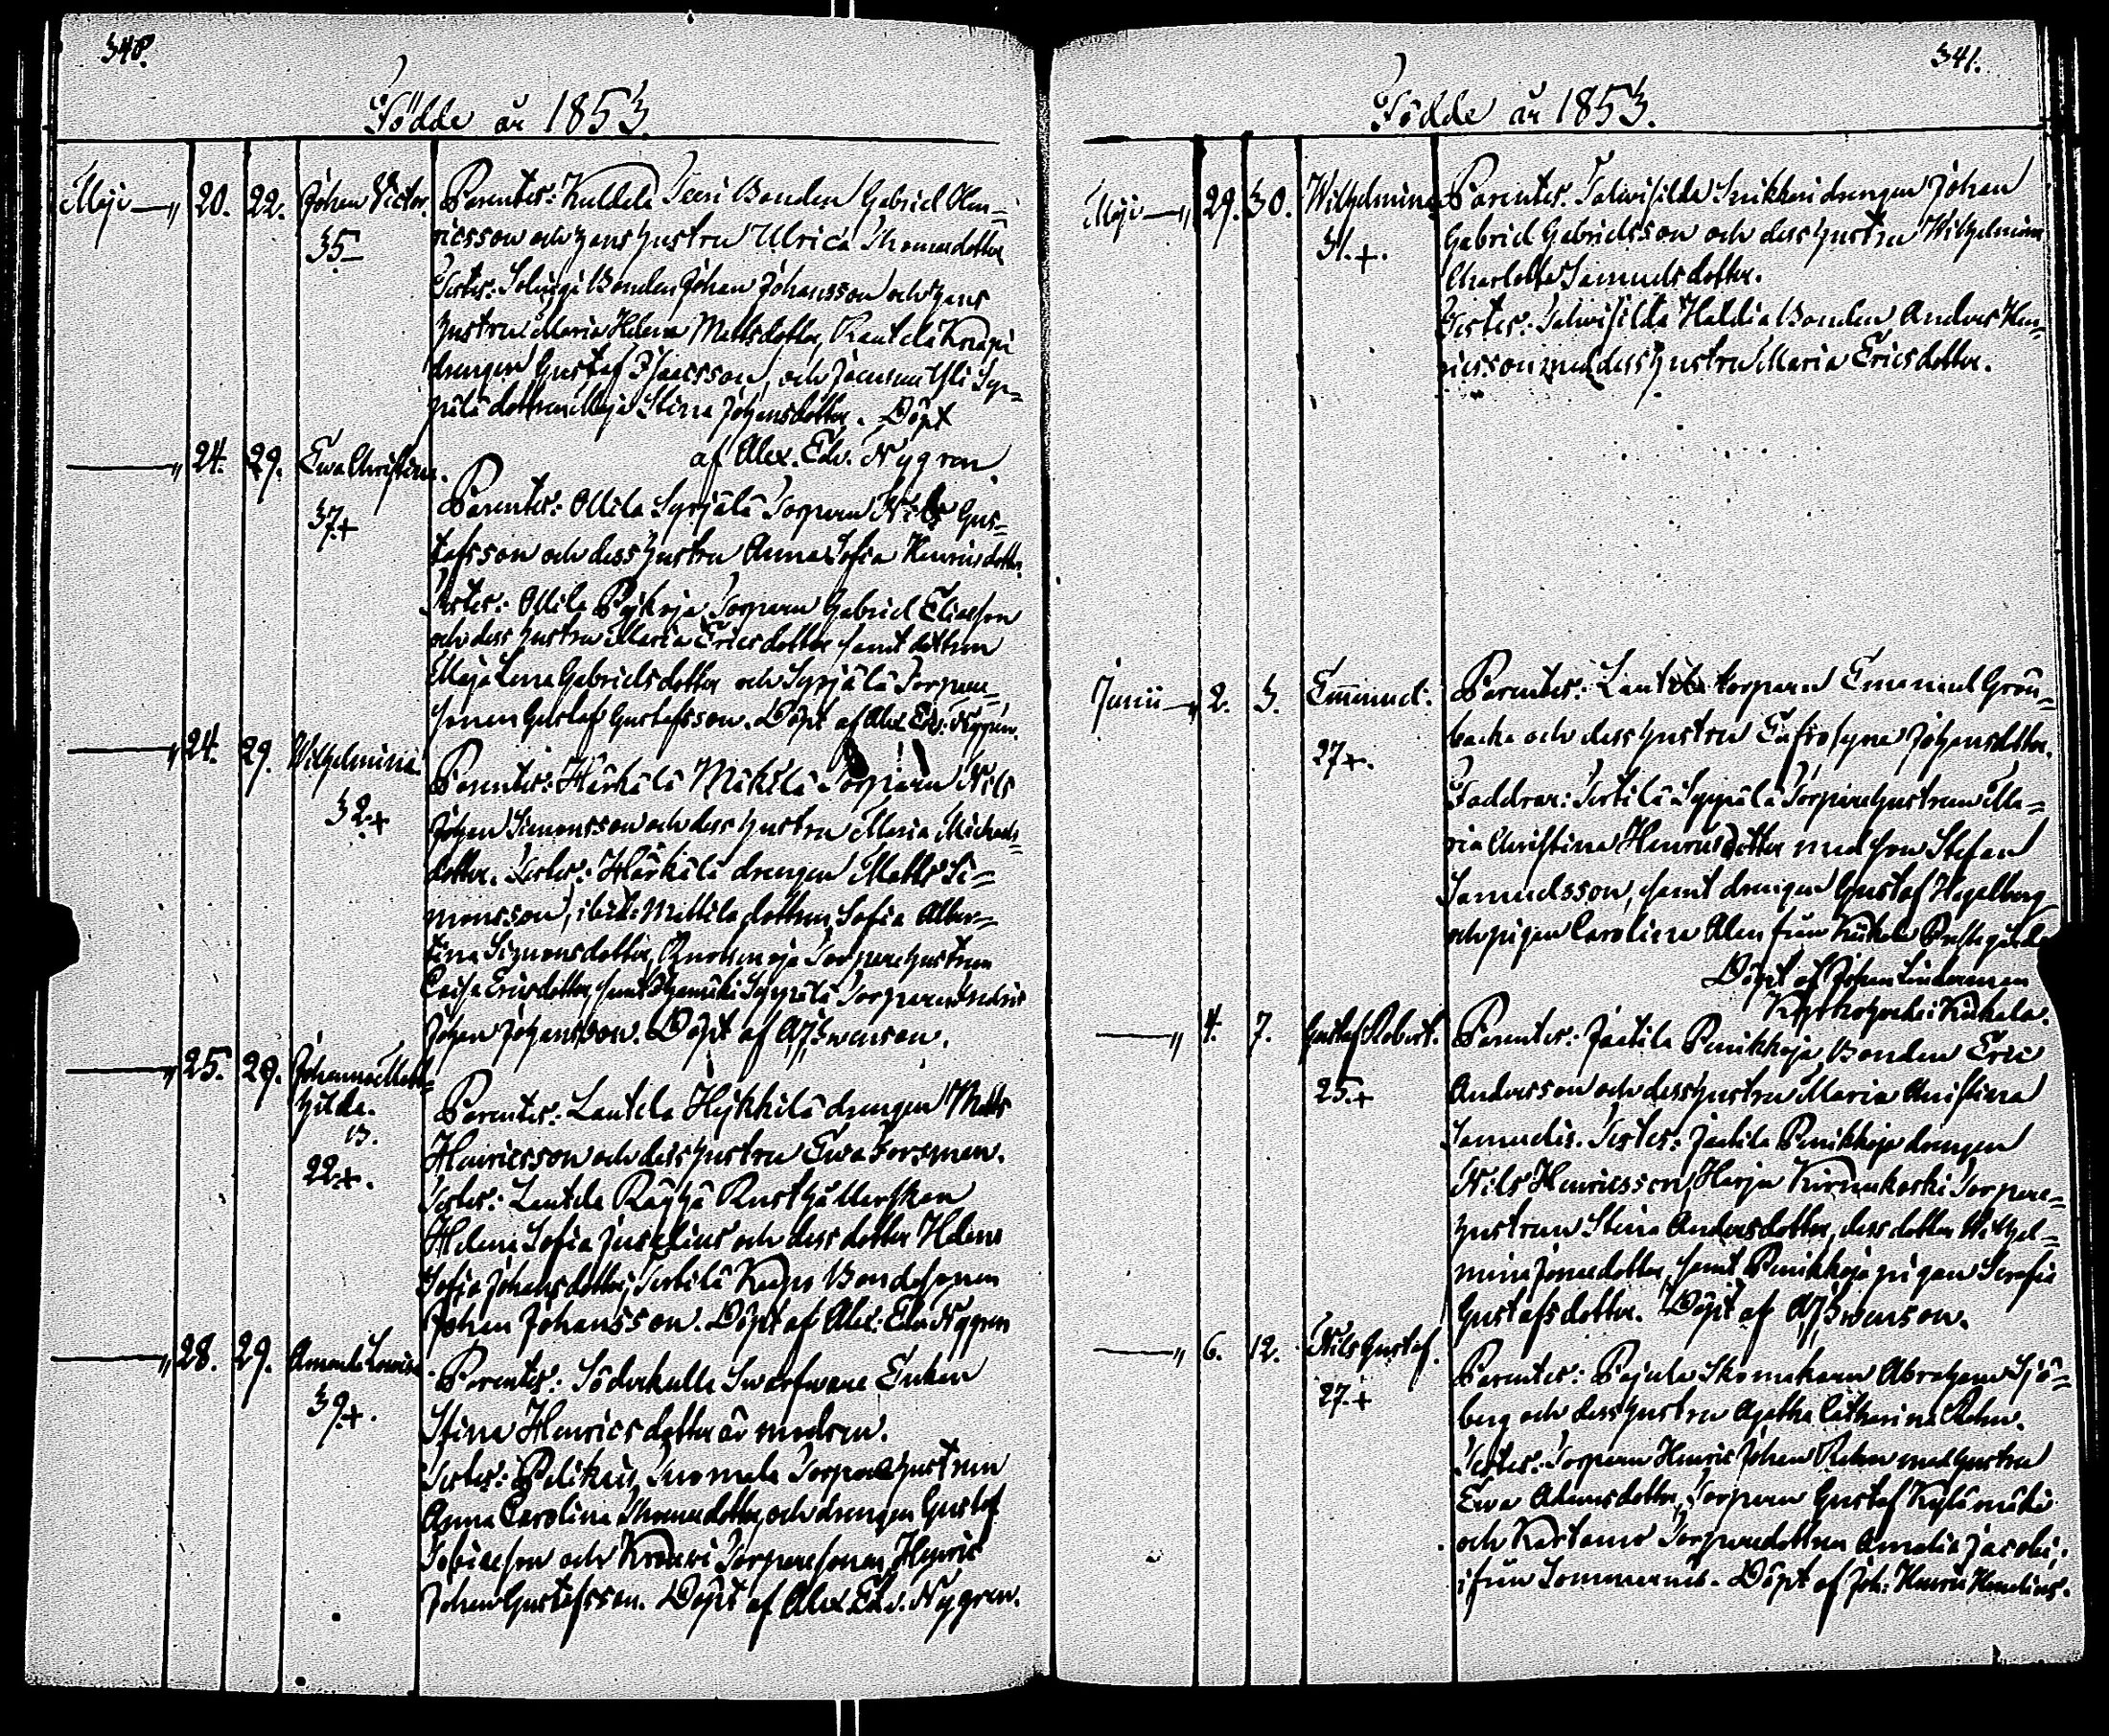 340.
Födde år 1853.
Maji —„ 20. 22. Johan Victor. Parentes: Kuldela Seeri Bonden Gabriel Hen-
35.— ricsson och hans hustru Ulrica Thomasdotter
Testes: Bonden Johan Johansson och hans
hustru Maria Helena Mattsdotter, Rautela Knapi
drengen Gustaf Isacsson, och
dottren Maja Stina Johansdotter. Döpt
af Alex. Edv. Nygren
—„ 24. 29. Ewa Christina.
Parentes: Ollila Syrjälä Torparn Nils Gus-
37.+
tafsson och dess hustru Anna Sofia Henricsdotter.
Testes: Ollila Torparn Gabriel Eliasson
och dess hustru Maria Ericsdotter samt dottren
Maja Lena Gabrielsdotter och Syrjälä Torpare-
sonen Gustaf Gustafsson. Döpt af Alex Edv. Nygren.
—„ 24. 29. Wilhelmina.
Parentes: Härkälä Mäkilä Torparn Nils
32.+
Johan Simonsson och dess hustru Maria Michels-
dotter. Testes: Härkälä drengen Matts Si-
monsson, ibid: Mattila dottren Sofia Alber-
tina Simonsdotter, Torparehustrun
Caisa Ericsdotter, samt Syrjälä Torparen
Johan Johansson. Döpt af Afj Swenson.
—„ 25. 29. Johanna Mat-
hilda.
Parentes: Lautela Heikkilä drengen Matts
22.+.
Henricsson och dess hustru Ewa Forsman.
Testes: Lautela Räyhä Rusthållerskan
Helena Sofia Juselius och dess dotter Helena
Sofia Johansdotter, Tortilä Bondesonen
Johan Johansson. Döpt af Alex: Edv Nygren
—„ 28. 29. Amanda Lovisa
Parentes: Söderkulla Enkan
39.+.
Stina Henricsdotter är modren.
Testes: Tuomala Torparehustrun
Anna Carolina Thomasdotter, och drengen Gustaf
Tobiasson och Torparesonen Henric
Johan Gustafsson. Döpt af Alex Edv. Nygren.
341.
Födde år 1853.
Maji —„ 29. 30. Wilhelmina Parentes. Snikkari drengen Johan
31.+. Gabriel Gabrielsson och dess hustru Wilhelmina
Charlotta Samuelsdotter.
Testes: Haldia Bonden Anders Hen-
ricsson med dess hustru Maria Ericsdotter.
Junii —„ 2. 3. Emanuel. Parentes: torparn Emanuel Grön-
27+. backa och dess hustru Eufrosyna Johansdotter.
Faddrar: Tortilä Seppälä Torparehustrun Ma-
ria Christina Henricsdotter med son Stefan
Samuelsson, samt drengen Gustaf Hagelberg
och pigan Carolina Alen från Kiukais Prestgård
Döpt af Johan Lindeman
Kyrkoherde i Kiukais.
—„ 4. 7. Gustaf Robert. Parentes: Jaatila Penikkoja Bonden Eric
25.+ Andersson och dess hustru Maria Christina
Samuelis. Testes: Jaatila Penikkoja drengen
Nils Henricsson, Harju Torpare-
hustrun Stina Andersdotter, dess dotter Wilhel-
mina Jonasdotter, samt Penikkoja pigan Serafia
Gustafsdotter. Döpt af Afj Swenson.
—„ 6. 12. Nils Gustaf.
Parentes: Pajula Skomakarn Abraham Sjö-
27.+
berg och dess hustru Agatha Catharina Rehn.
Testes: Torparn Henric Johan Rehn med hustru
Ewa Adamsdotter, Torparn Gustaf Kylänmäki
och Kartano Torparedottren Amalia Jacobi,
ifrån Sommarnäs. Döpt af Joh: Henric Hemelius.